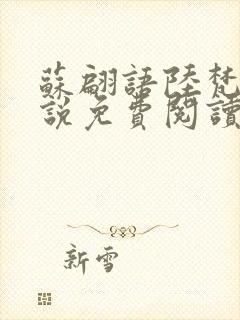 蘇翩語陸梵
說免費閱讀
新雪